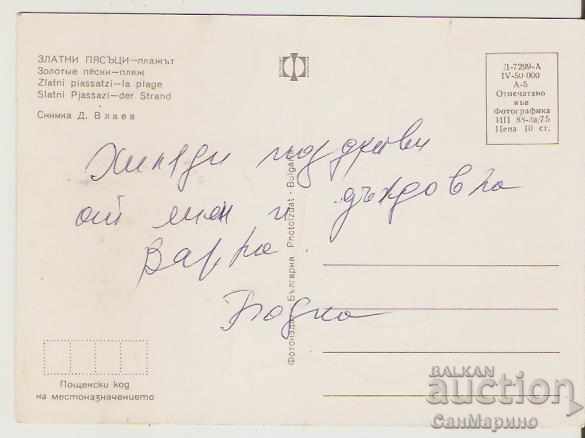 ЗЛАТНИ ПЯСЪЦИ—плажът
Золотые пески—пляж
Zlatni piassatzi—la plage
Slatni Pjassazi—der Strand
Снимка Д. Влаев
Д-7299-А
IV-50 000
А-5
Отпечатано
във
Фотографика
Цена 10 ст.
Хиляди поздрави
от мен и дъждовна
Варна
Фотоиздат · България · Photoizdat - Bulgarie
Пощенски код
на местоназначението
BALKAN
auction
СанМарино